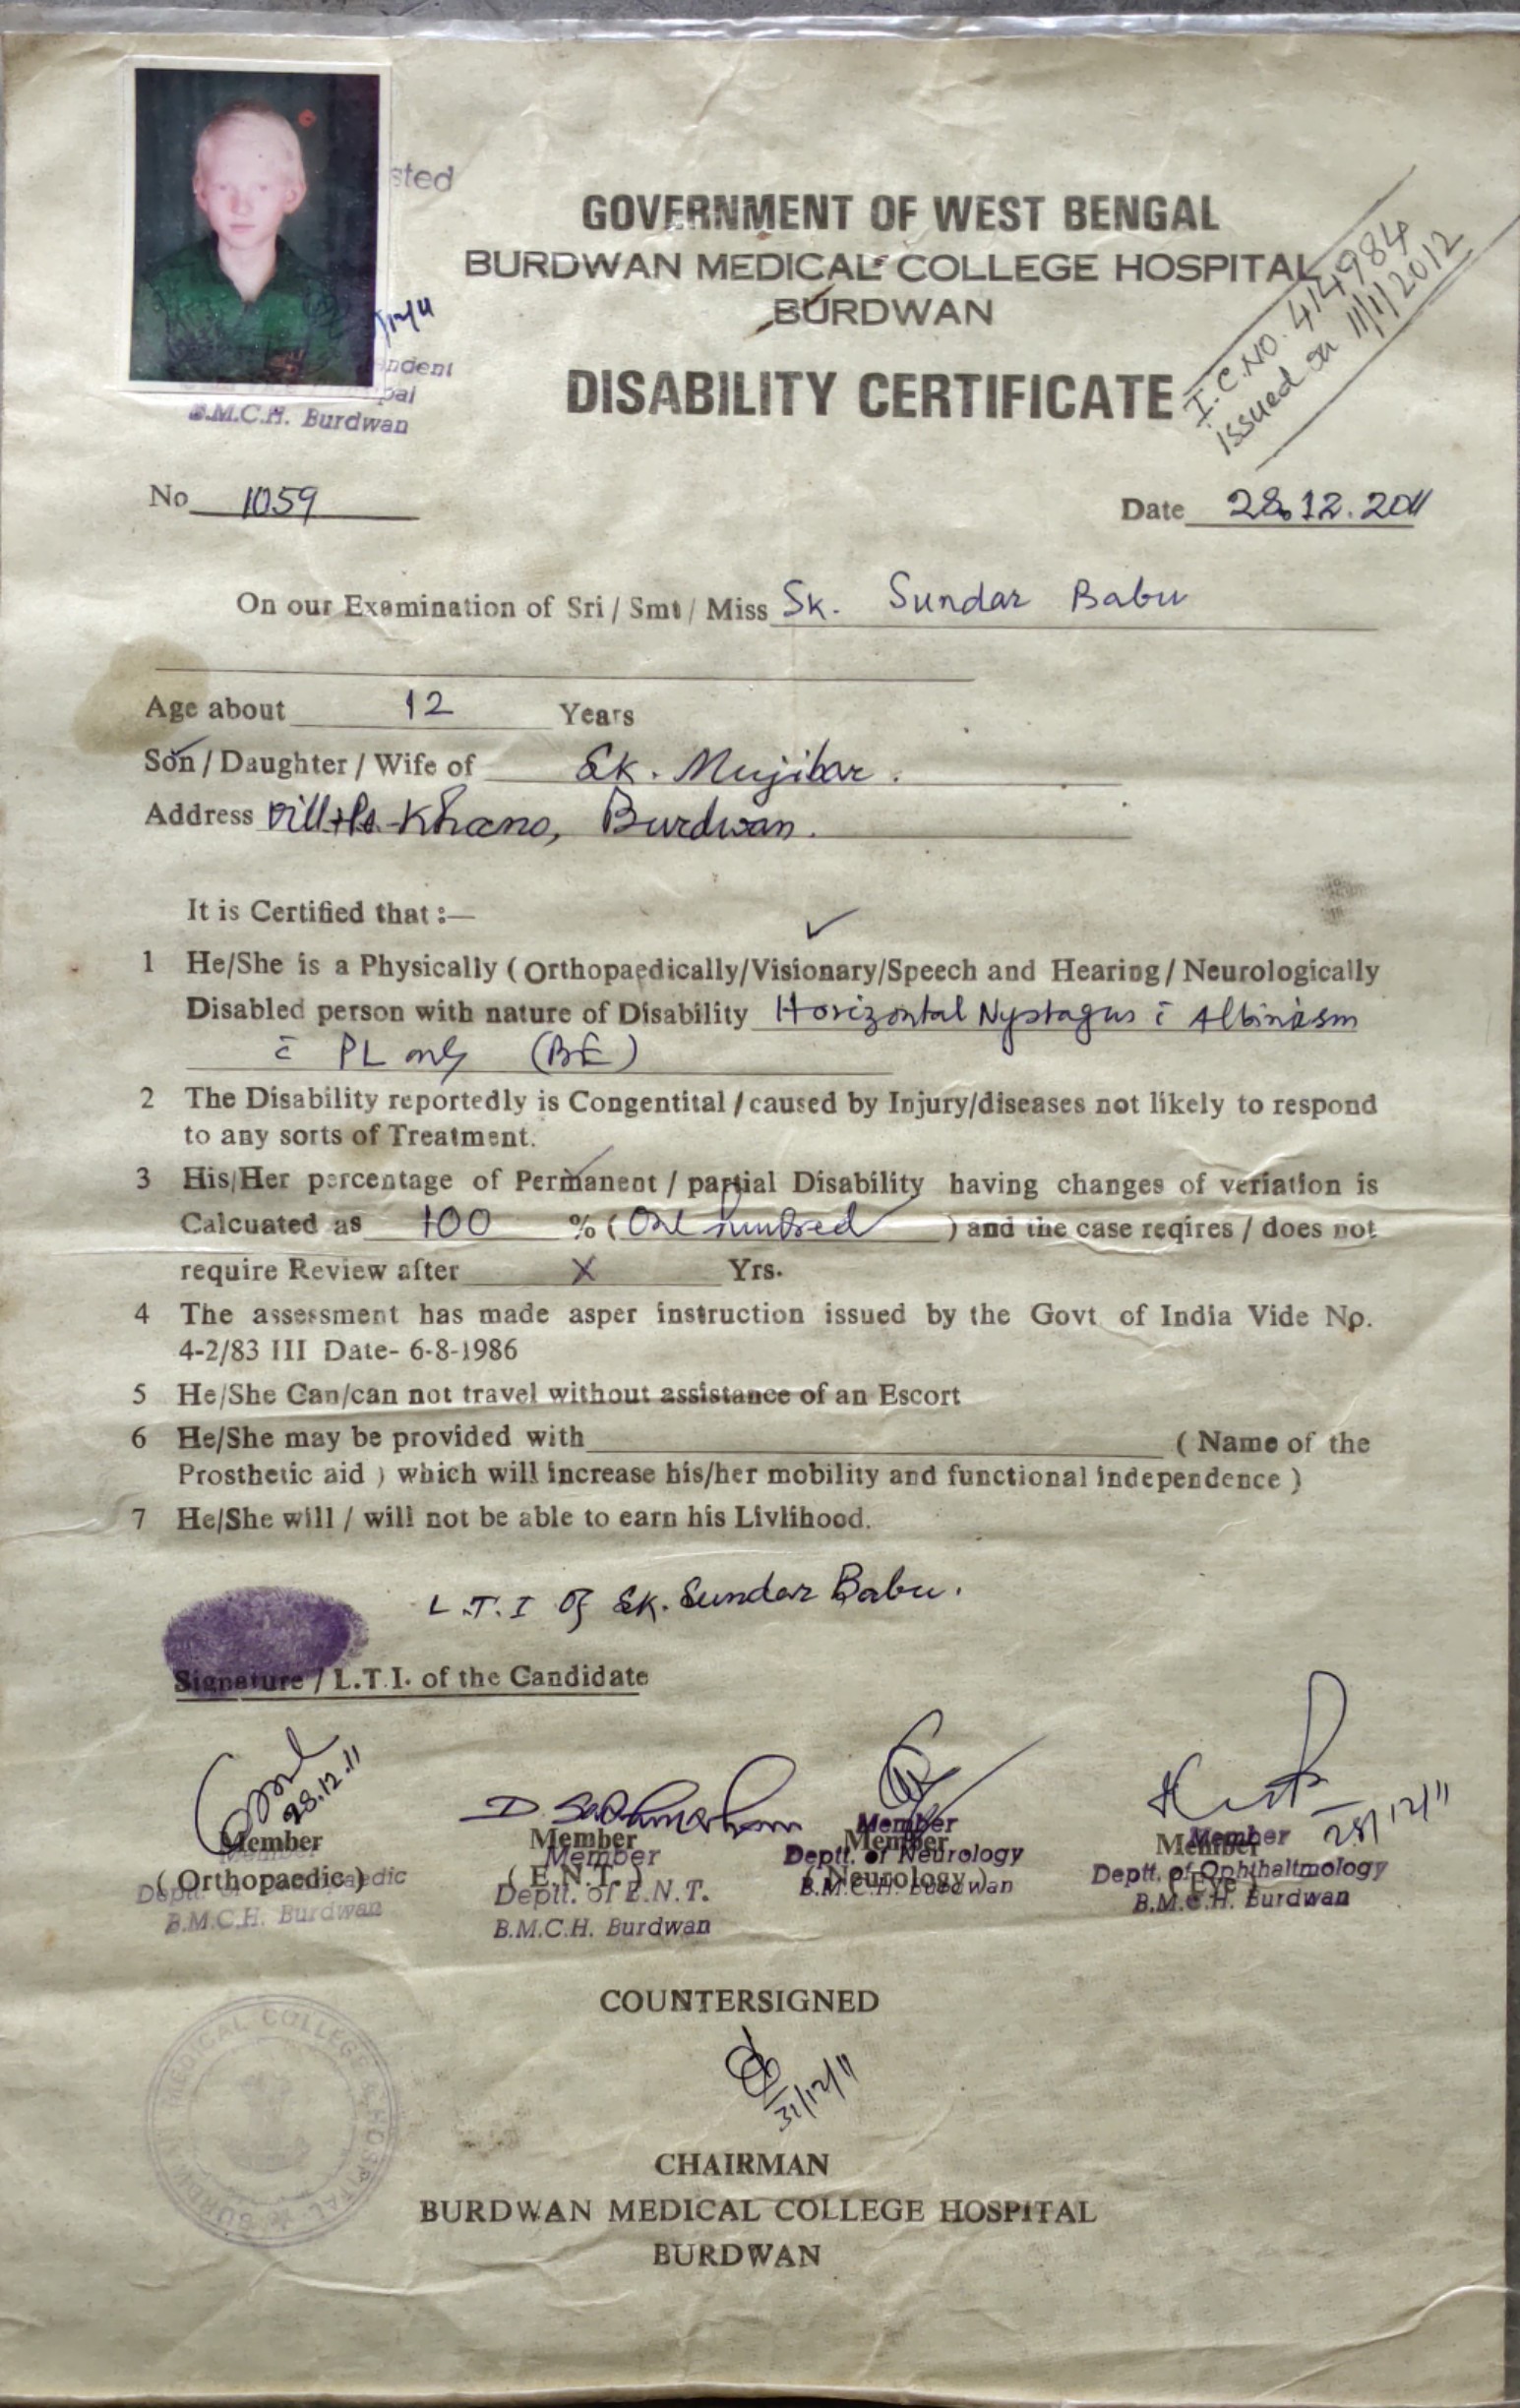 sted
GOVERNMENT OF WEST BENGAL
BURDWAN MEDICAL COLLEGE HOSPITAL
BURDWAN
DISABILITY CERTIFICATE
I.C.NO. 414984
issued on 11/1/2012
ndent
pal
B.M.C.H. Burdwan
No 1059
Date 28.12.2011
On our Examination of Sri / Smt / Miss Sk. Sundar Babu
Age about 12 Years
Son / Daughter / Wife of Sk. Mujibar.
Address Vill+Ps-Khano, Burdwan.
It is Certified that :—
1 He/She is a Physically ( Orthopaedically/Visionary/Speech and Hearing / Neurologically
Disabled person with nature of Disability Horizontal Nystagus c̄ Albinism
c̄ PL only (BE)
2 The Disability reportedly is Congentital / caused by Injury/diseases not likely to respond
to any sorts of Treatment.
3 His/Her percentage of Permanent / partial Disability having changes of veriation is
Calcuated as 100 % ( One hundred ) and the case reqires / does not
require Review after X Yrs.
4 The assessment has made asper instruction issued by the Govt of India Vide No.
4-2/83 III Date- 6-8-1986
5 He/She Can/can not travel without assistance of an Escort
6 He/She may be provided with ( Name of the
Prosthetic aid ) which will increase his/her mobility and functional independence )
7 He/She will / will not be able to earn his Livlihood.
L.T.I of Sk. Sundar Babu.
Signature / L.T.I. of the Candidate
28.12.11
28/12/11
Member Member Member Member
Member Member Member
( Orthopaedic ) ( E.N.T. ) ( Neurology ) ( Eye )
Deptt. of Orthopaedic Deptt. of E.N.T. Deptt. of Neurology Deptt. of Ophthaltmology
B.M.C.H. Burdwan B.M.C.H. Burdwan B.M.C.H. Burdwan B.M.C.H. Burdwan
COUNTERSIGNED
31/12/11
BURDWAN MEDICAL COLLEGE & HOSPITAL
CHAIRMAN
BURDWAN MEDICAL COLLEGE HOSPITAL
BURDWAN